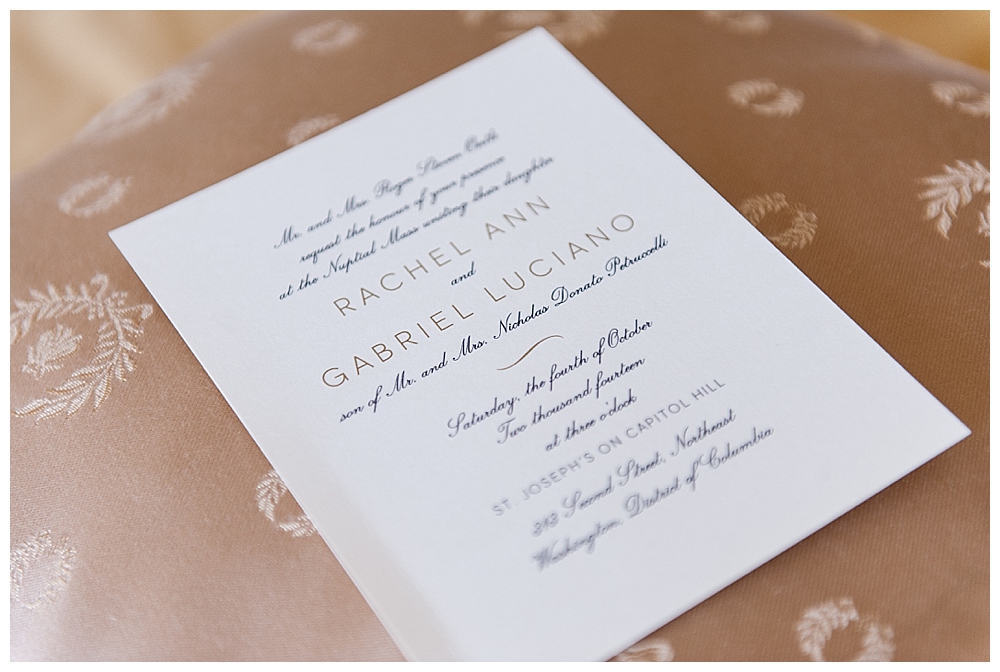 Mr. and Mrs. Roger Steven
request the honour of your presence
at the Nuptial Mass uniting their daughter
RACHEL ANN
and
GABRIEL LUCIANO
son of Mr. and Mrs. Nicholas Donato Petruccelli
Saturday, the fourth of October
Two thousand fourteen
at three o'clock
ST. JOSEPH'S ON CAPITOL HILL
313 Second Street, Northeast
Washington, District of Columbia